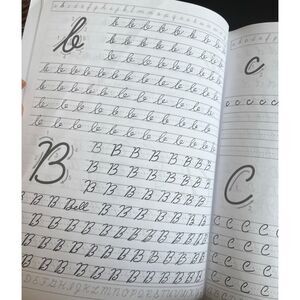 a b c d e f g h i j k l m
b
b b b b b b b
b b b b b b b
b b b b b b b
b b b b b b b b b b b b
b b b b b b b b b b b b
b b b b b b b b b b b b
b b b b b b b b b b b b
B
B B B B B B B
B B B B B B B
B B B B B B B
B B Bell B B B B B B
B B B B B B B B B
B B B B B B B B B
B B B B B B B B B
c
c c c c c
C
C C C C
C C C C
C C C C
C C C C